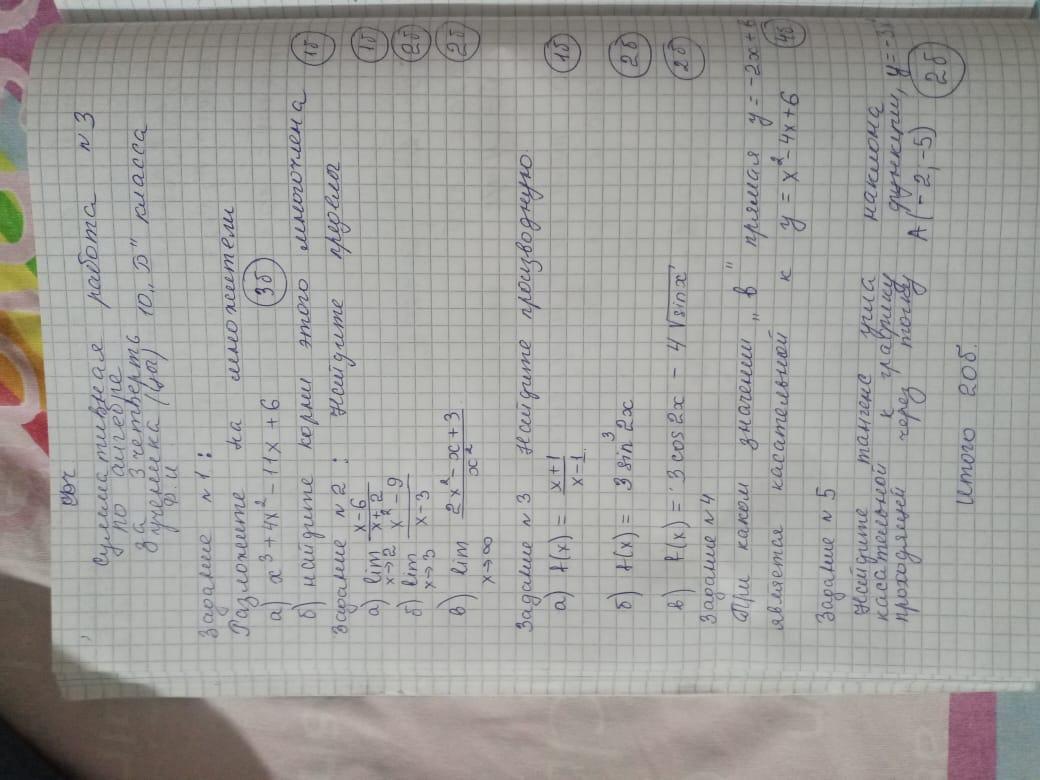 Суммативная работа №3
по алгебре
За 3 четверть
ученика (цы) 10 „Б" класса
Ф.И
Задание №1:
Разложите на множители
а) x³ + 4x² - 11x + 6 (3б)
б) найдите корни этого многочлена (1б)
Задание №2: Найдите пределы
а) lim x→2 (x-6)/(x+2) (1б)
б) lim x→3 (x²-9)/(x-3) (2б)
в) lim x→∞ (2x² - x + 3)/x² (2б)
Задание №3 Найдите производную.
а) f(x) = (x+1)/(x-1) (1б)
б) f(x) = 3 sin³ 2x (2б)
в) f(x) = 3 cos 2x - 4√sin x (2б)
Задание №4
При каком значении „в" прямая y = -2x + в
является касательной к y = x² - 4x + 6 (4б)
Задание №5
Найдите тангенс угла наклона
касательной к графику функции, y = -3x
проходящей через точку A(-2; -5) (2б)
Итого 20б.